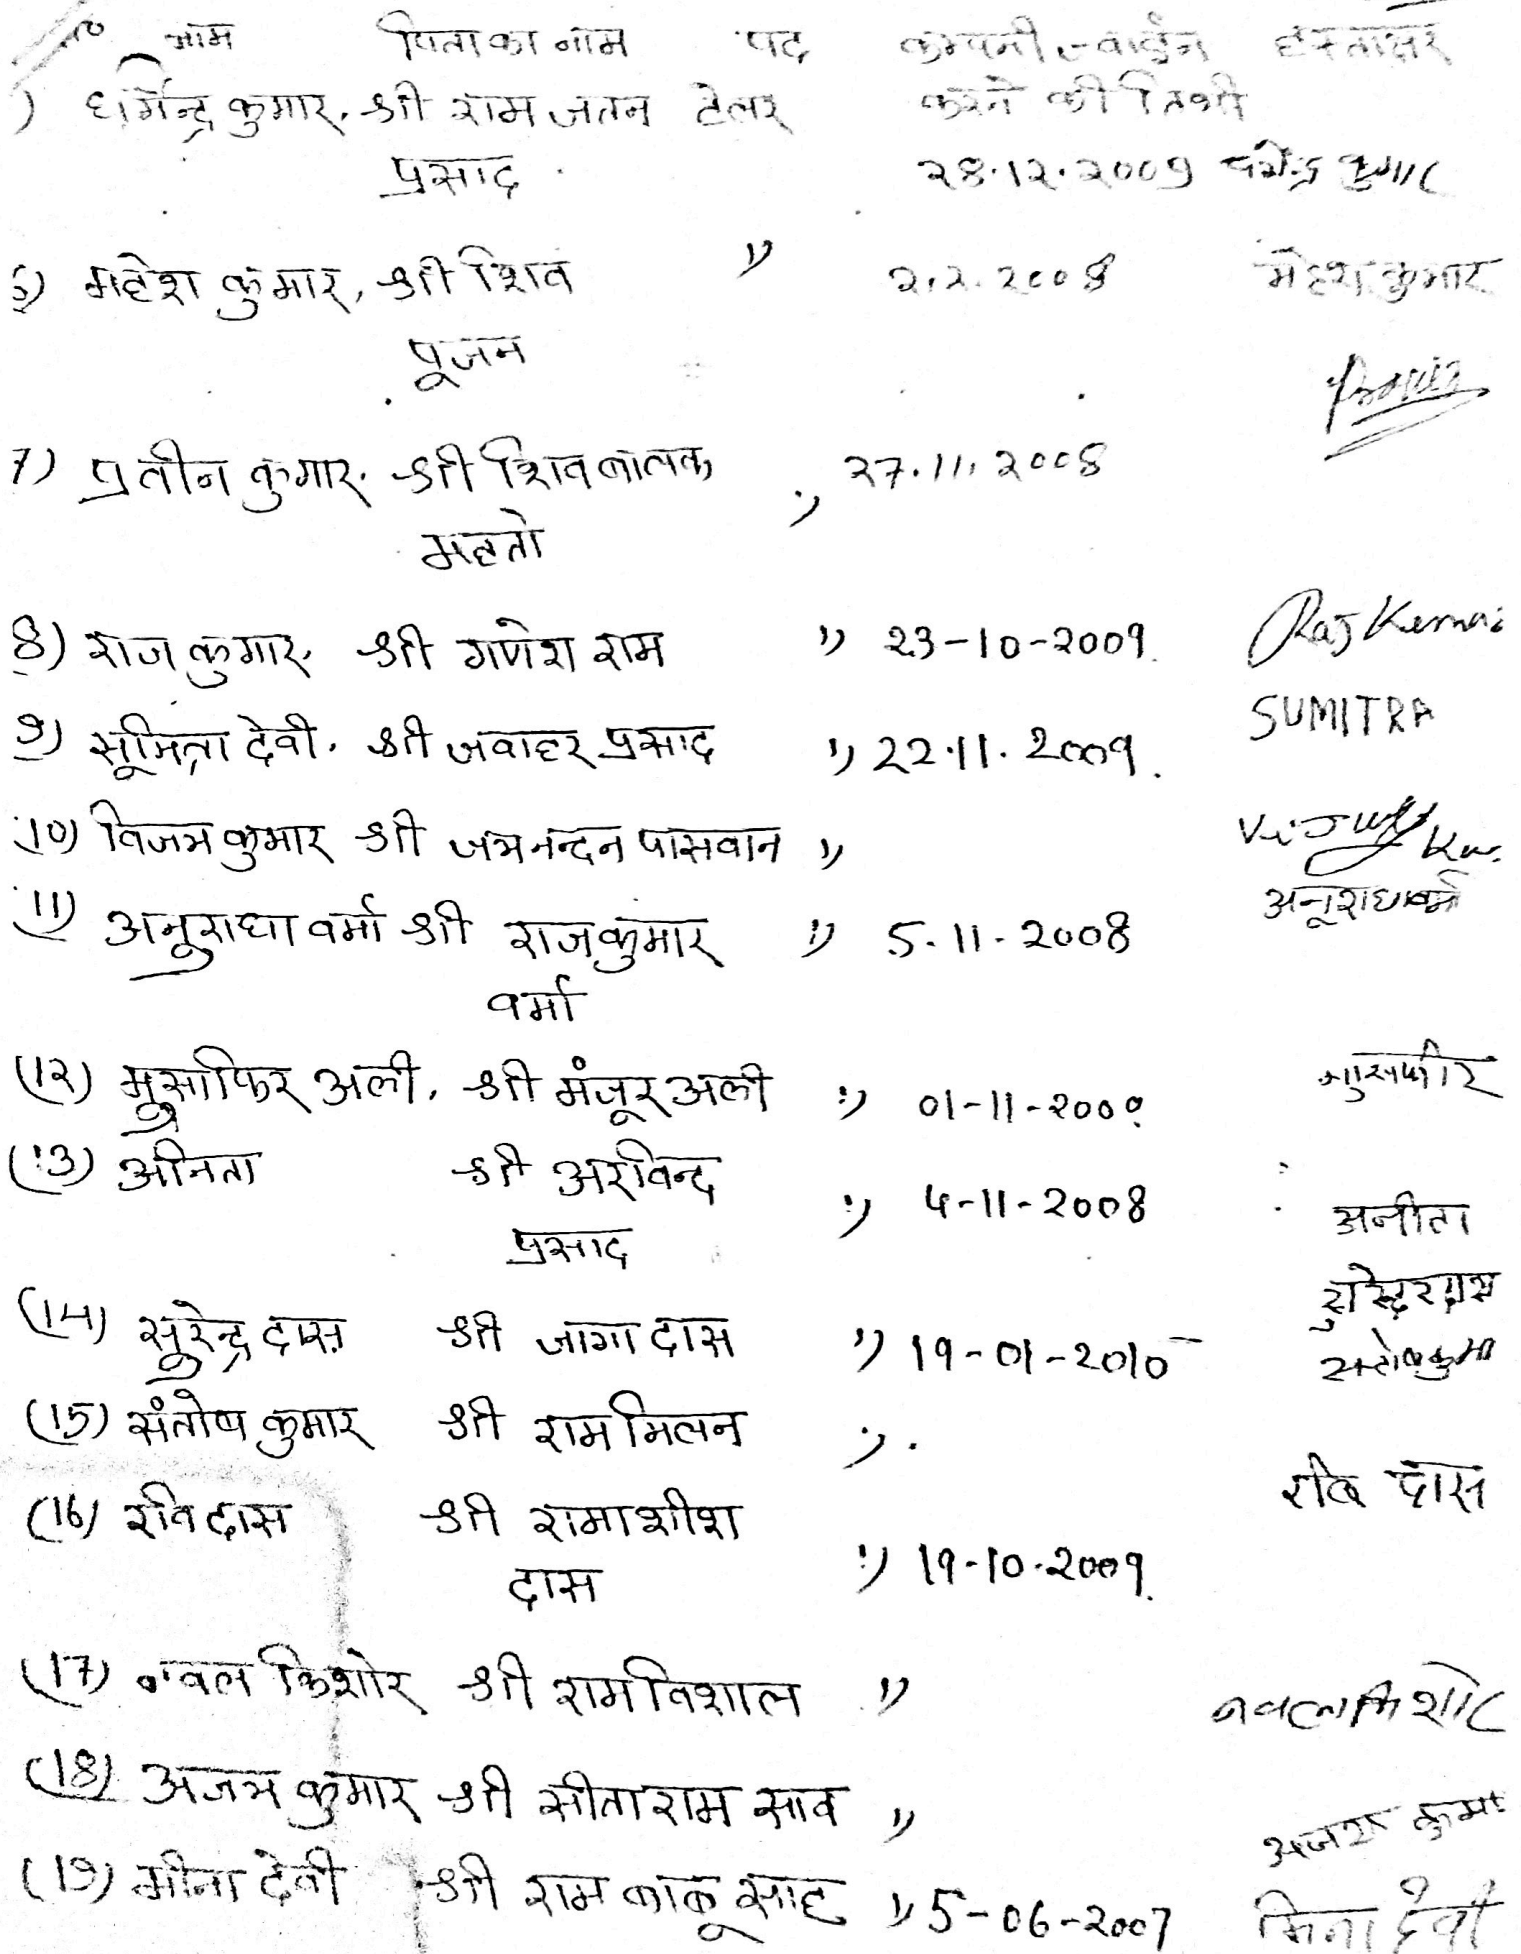 नाम पिता का नाम पद कम्पनी ज्वाईन हस्ताक्षर
) धर्मेन्द्र कुमार, श्री राम जतन टेलर करने की तिथी
प्रसाद २8.1२.२009 धर्मेन्द्र कुमार
6) महेश कुमार, श्री शिव " २.२.2008 महेश कुमार
पूजन
7) प्रवीन कुमार, श्री शिव बालक " २7.11.2008
महतो
8) राज कुमार, श्री गणेश राम " 23-10-2009. Raj Kumar
9) सूमित्रा देवी, श्री जवाहर प्रसाद " 22.11.2009. SUMITRA
10) विजय कुमार श्री जयनन्दन पासवान " Vijay Ku.
11) अनुराधा वर्मा श्री राजकुमार " 5-11-2008 अनूराधा वर्मा
वर्मा
(1२) मुसाफिर अली, श्री मंजूर अली " 01-11-200 मुसाफीर
(13) अनिता श्री अरविन्द " 4-11-2008 अनीता
प्रसाद
(14) सुरेन्द्र दास श्री जागा दास " 19-01-2010
(15) संतोष कुमार श्री राम मिलन " सन्तोष कुमा
(16) रवि दास श्री रामाशीश रवि दास
दास " 19-10-2009.
(17) नवल किशोर श्री राम विशाल " नवल किशोर
(18) अजय कुमार श्री सीताराम साव " अजय कुमार
(19) मीना देवी श्री राम बाबू साह " 5-06-2007 मिना देवी